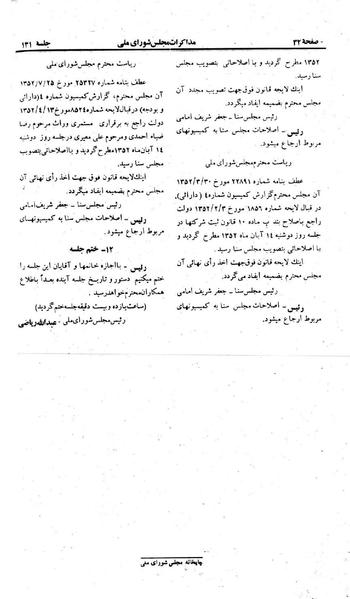 صفحهٔ ۳۲
مذاکرات مجلس شورای ملی
جلسه ۱۳۱
۱۳۵۲ مطرح گردید و با اصلاحاتی بتصویب مجلس
سنا رسید.
اینک لایحه قانون فوق جهت تصویب مجدد آن
مجلس محترم ایفاد میگردد.
رئیس مجلس سنا - جعفر شریف امامی
رئیس - اصلاحات مجلس سنا به کمیسیونهای
مربوط ارجاع میشود.
ریاست محترم مجلس شورای ملی
عطف بنامه شماره ۲۲۸۹۱ مورخ ۱۳۵۲/۳/۳۰
آن مجلس محترم گزارش کمیسیون شماره ۴ (دارائی)
در قبال لایحه شماره ۱۸۵۶ مورخ ۱۳۵۲/۲/۳ دولت
راجع باصلاح بند پ ماده ۱۰ قانون ثبت شرکتها در
جلسه روز دوشنبه ۱۴ آبان ماه ۱۳۵۲ مطرح گردید و
با اصلاحاتی بتصویب مجلس سنا رسید.
اینک لایحه قانون فوق جهت اخذ رأی نهائی آن
مجلس محترم بضمیمه ایفاد میگردد.
رئیس مجلس سنا - جعفر شریف امامی
رئیس - اصلاحات مجلس سنا به کمیسیونهای
مربوط ارجاع میشود.
ریاست محترم مجلس شورای ملی
عطف بنامه شماره ۲۵۳۲۷ مورخ ۱۳۵۲/۷/۲۵
آن مجلس محترم، گزارش کمیسیون شماره ۴ (دارائی
و بودجه) در قبال لایحه شماره ۸۵۲۴ مورخ ۱۳۵۲/۴/۱۳
دولت راجع به برقراری مستمری وراث مرحوم رضا
ضیاء احمدی ومرحوم علی معیری در جلسه روز دوشنبه
۱۴ آبان ماه ۱۳۵۲ مطرح گردید و با اصلاحاتی بتصویب
مجلس سنا رسید.
اینک لایحه قانون فوق جهت اخذ رأی نهائی آن
مجلس محترم بضمیمه ایفاد میگردد.
رئیس مجلس سنا - جعفر شریف امامی
رئیس - اصلاحات مجلس سنا به کمیسیونهای
مربوط ارجاع میشود.
۱۲- ختم جلسه
رئیس - با اجازه خانمها و آقایان این جلسه را
ختم میکنیم دستور و تاریخ جلسه آینده بعداً باطلاع
همکاران محترم خواهد رسید.
(ساعت یازده و بیست دقیقه جلسه ختم گردید)
رئیس مجلس شورای ملی - عبدالله ریاضی
چاپخانه مجلس شورای ملی